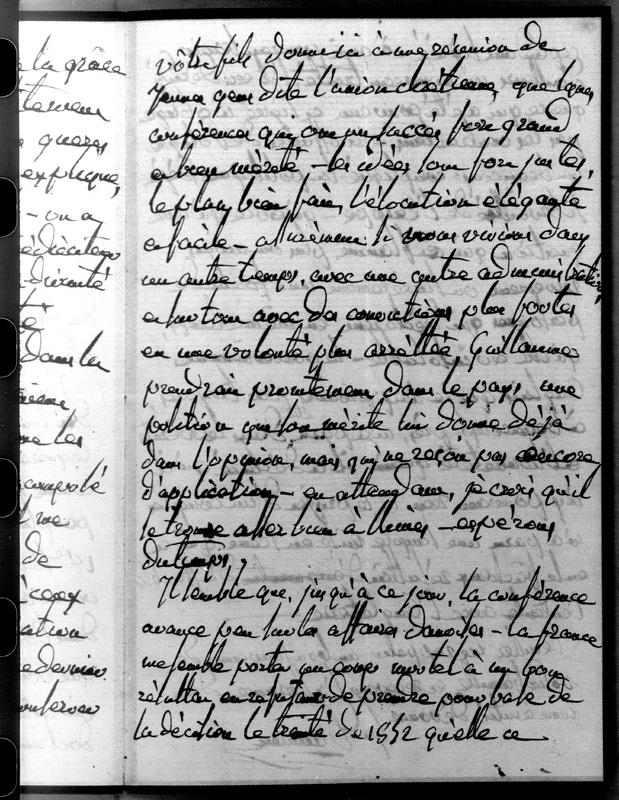 e la grâce
quezes
explique,
- on a
- divinité
dans la
me les
t me
de
votre fils donne ici à une réunion de
Jeunes gens dite l'union chrétienne, quelques
conférences qui ont un succès fort grand
et bien mérité - les idées sont fort justes,
le plan bien fait, l'élocution élégante
et facile - assurément si nous vivions dans
un autre temps, avec une autre administration,
et surtout avec des convictions plus fortes
et une volonté plus arrêttée, Guillaume
prendrait promptement dans le pays une
position que son mérite lui donne déjà
dans l'opinion, mais qui ne reçoit pas encore
d'application - en attendant, je crois qu'il
se trouve assez bien à Nimes - espérons
du temps.
Il semble que, jusqu'à ce jour, la conférence
avance peu sur les affaires danoises - la france
me semble porter un coup mortel à un bon
résultat en refusant de prendre pour base de
la décision le traité de 1852 qu'elle a